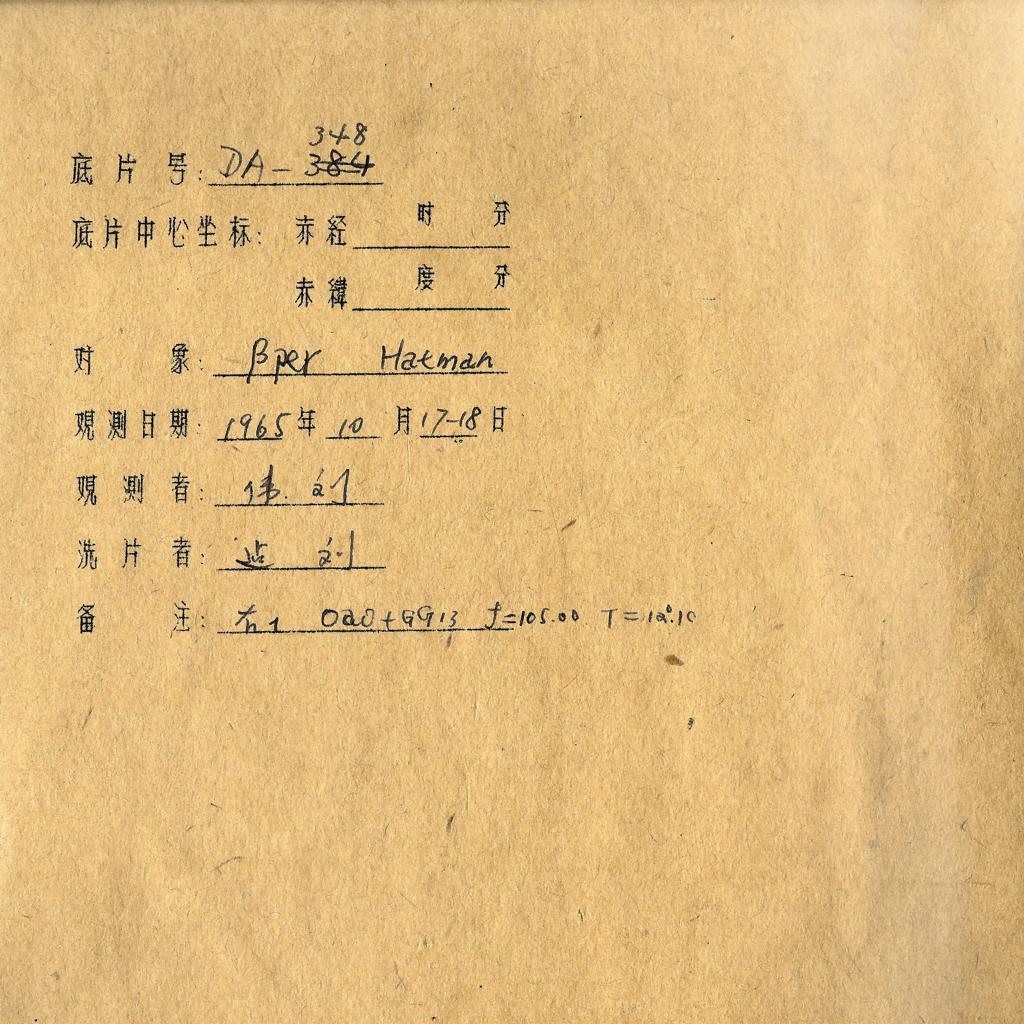 348
底片号: DA-384
底片中心坐标: 赤经 时 分
赤緯 度 分
对 象: βper Hatman
观测日期: 1965年10月17-18日
观测者: 伟. 刘
洗片者: 刘
备注: 右1 OaO+GG13 f=105.00 T=12°.10